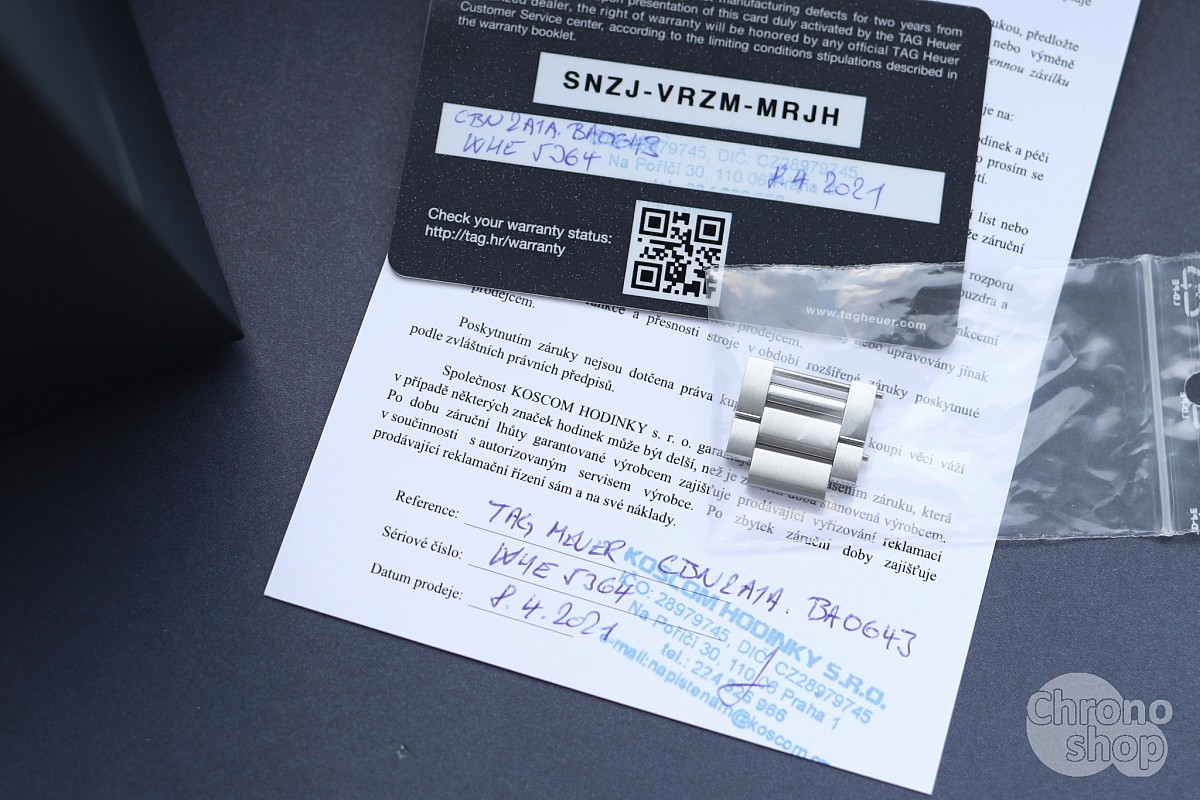 manufacturing defects for two years from
presentation of this card duly activated by the TAG Heuer
dealer, the right of warranty will be honored by any official TAG Heuer
Customer Service center, according to the limiting conditions stipulations described in
the warranty booklet.
SNZJ-VRZM-MRJH
CBN2A1A.BA0643
WHE5364
8.4.2021
DIČ: CZ28979745
Na Poříčí 30, 110 00 Praha
Check your warranty status:
http://tag.hr/warranty
www.tagheuer.com
předložte
nebo výměně
zásilku
je na:
hodinek a péči
prosím se
list nebo
že záruční
rozporu
pouzdra a
prodejcem.
funkce a přesnosti stroje v období rozšířené záruky poskytnuté
prodejcem. nebo upravovány jinak
Poskytnutím záruky nejsou dotčena práva
koupi věci váží
podle zvláštních právních předpisů.
Společnost KOSCOM HODINKY s. r. o.
záruku, která
v případě některých značek hodinek může být delší, než je
doba stanovená výrobcem.
Po dobu záruční lhůty garantované výrobcem zajišťuje prodávající vyřizování reklamací
v součinnosti s autorizovaným servisem výrobce. Po zbytek záruční doby zajišťuje
prodávající reklamační řízení sám a na své náklady.
Reference: TAG HEUER CBN2A1A.BA0643
Sériové číslo: WHE5364
Datum prodeje: 8.4.2021
KOSCOM HODINKY S.R.O.
IČO: 28979745, DIČ: CZ28979745
Na Poříčí 30, 110 00 Praha 1
tel.: 224 826 966
e-mail:napistenam@koscom.cz
Chrono
shop